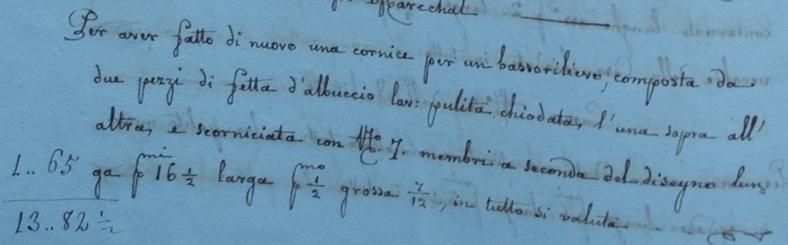 apparechal
Per aver fatto di nuovo una cornice per un bassorilievo, composta da
due pezzi di fetta d'albuccio lav: pulita, chiodata, l'una sopra all'
altra, e scorniciata con No. 7. membri a seconda del disegno lun=
1.. 65 ga pmi 16 1/2 larga pmo 1/2 grossa 7/12, in tutto si valuta
13.. 82 1/2